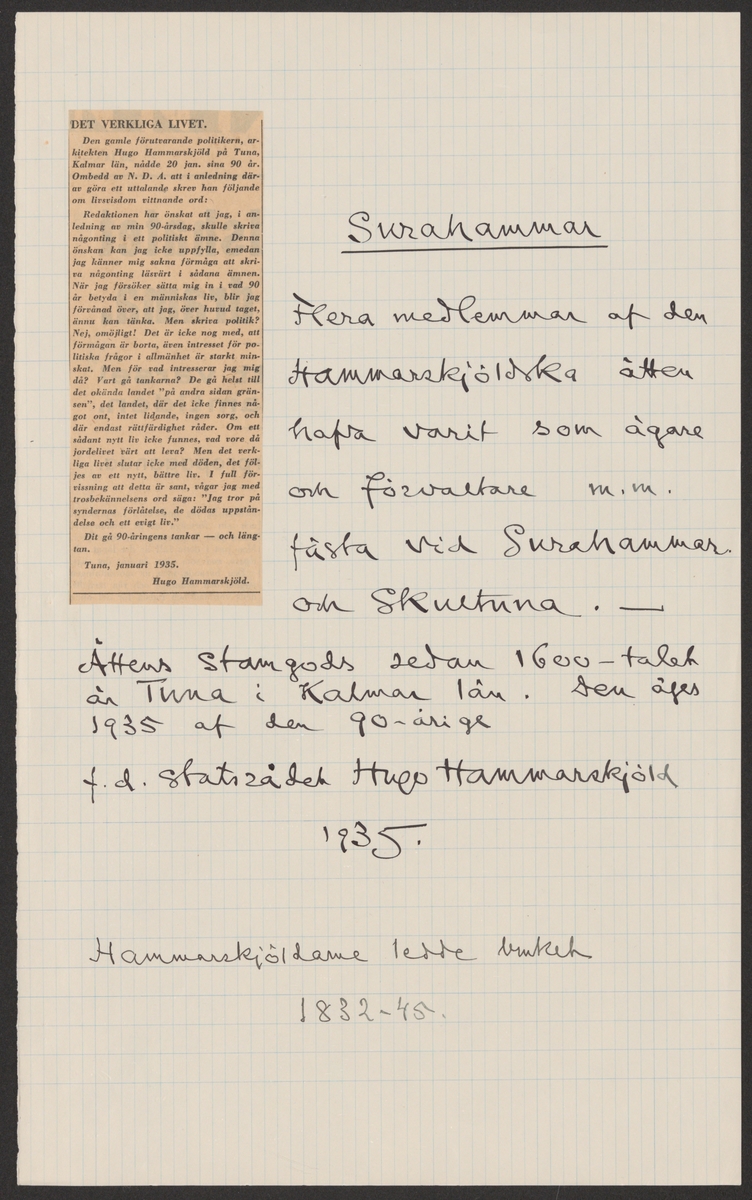 DET VERKLIGA LIVET.
Den gamle förutvarande politikern, ar-
kitekten Hugo Hammarskjöld på Tuna,
Kalmar län, nådde 20 jan. sina 90 år.
Ombedd av N. D. A. att i anledning där-
av göra ett uttalande skrev han följande
om livsvisdom vittnande ord:
Redaktionen har önskat att jag, i an-
ledning av min 90-årsdag, skulle skriva
någonting i ett politiskt ämne. Denna
önskan kan jag icke uppfylla, emedan
jag känner mig sakna förmåga att skri-
va någonting läsvärt i sådana ämnen.
När jag försöker sätta mig in i vad 90
år betyda i en människas liv, blir jag
förvånad över, att jag, över huvud taget,
ännu kan tänka. Men skriva politik?
Nej, omöjligt! Det är icke nog med, att
förmågan är borta, även intresset för po-
litiska frågor i allmänhet är starkt min-
skat. Men för vad intresserar jag mig
då? Vart gå tankarna? De gå helst till
det okända landet "på andra sidan grän-
sen", det landet, där det icke finnes nå-
got ont, intet lidande, ingen sorg, och
där endast rättfärdighet råder. Om ett
sådant nytt liv icke funnes, vad vore då
jordelivet värt att leva? Men det verk-
liga livet slutar icke med döden, det föl-
jes av ett nytt, bättre liv. I full för-
vissning att detta är sant, vågar jag med
trosbekännelsens ord säga: "Jag tror på
syndernas förlåtelse, de dödas uppstån-
delse och ett evigt liv."
Dit gå 90-åringens tankar — och läng-
tan.
Tuna, januari 1935.
Hugo Hammarskjöld.
Surahammar
Flera medlemmar af den
Hammarskjöldska ätten
hafva varit som ägare
och förvaltare m.m.
fästa vid Surahammar
och Skultuna. —
Ättens stamgods sedan 1600-talet
är Tuna i Kalmar län. Den äges
1935 af den 90-årige
f.d. statsrådet Hugo Hammarskjöld
1935.
Hammarskjöldarne ledde bruket
1832-45.